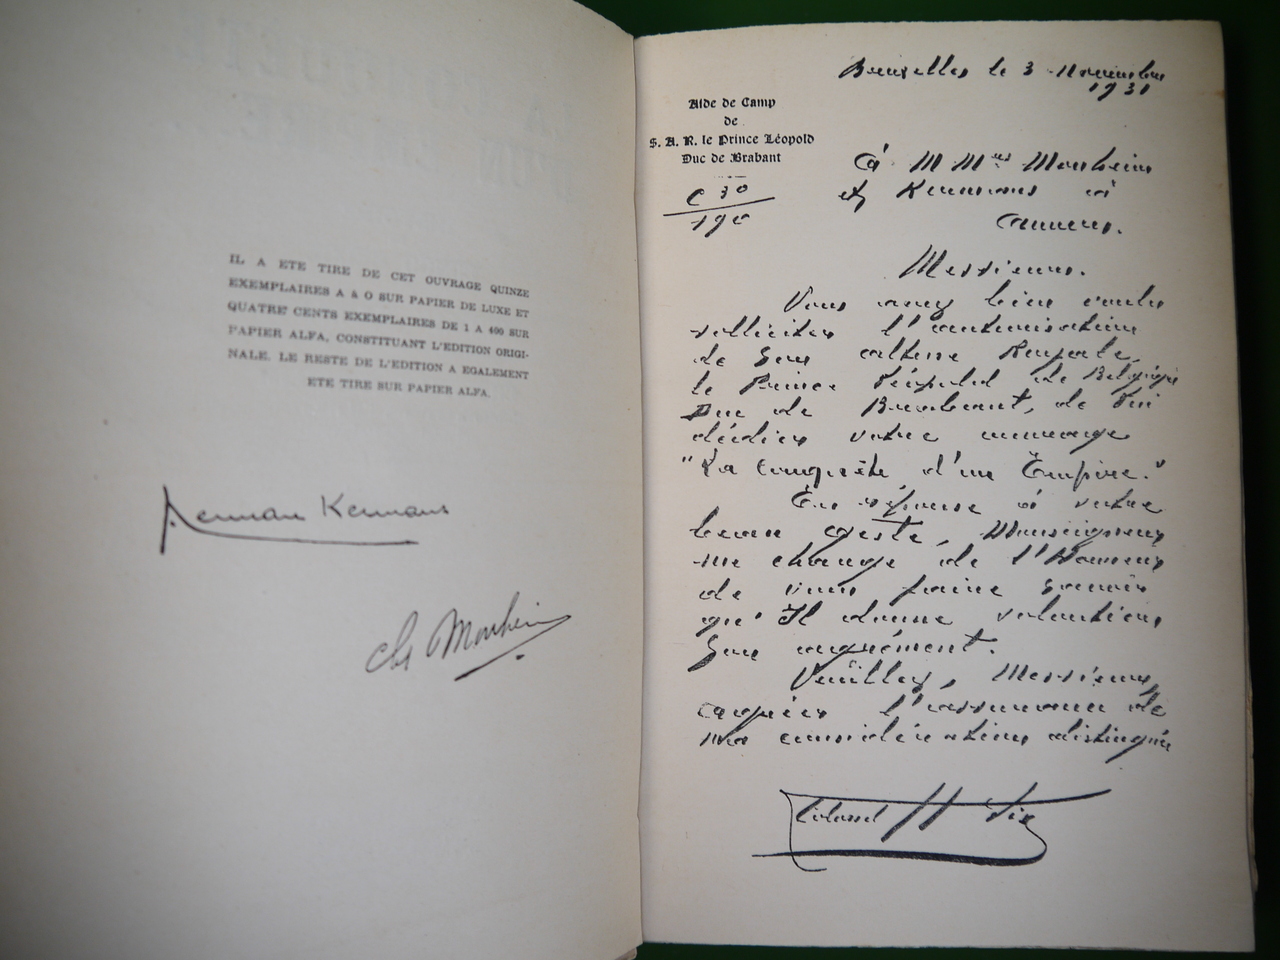 IL A ETE TIRE DE CET OUVRAGE QUINZE
EXEMPLAIRES A à O SUR PAPIER DE LUXE ET
QUATRE CENTS EXEMPLAIRES DE 1 A 400 SUR
PAPIER ALFA, CONSTITUANT L'EDITION ORIGI-
NALE. LE RESTE DE L'EDITION A EGALEMENT
ETE TIRE SUR PAPIER ALFA.
Herman Kermans
Ch Monheim
Bruxelles le 3 Novembre
1931
Aide de Camp
de
S. A. R. le Prince Léopold
Duc de Brabant
C 30
190
à M Mrs Monheim
et Kermans à
Anvers.
Messieurs.
Vous avez bien voulu
solliciter l'autorisation
de Son Altesse Royale,
le Prince Léopold de Belgique
Duc de Brabant, de Lui
dédier votre ouvrage
"La Conquête d'un Empire."
En réponse à votre
beau geste, Monseigneur
me charge de l'Honneur
de vous faire savoir
qu'Il donne volontiers
Son agrément.
Veuillez, Messieurs,
agréer l'assurance de
ma considération distinguée
Colonel